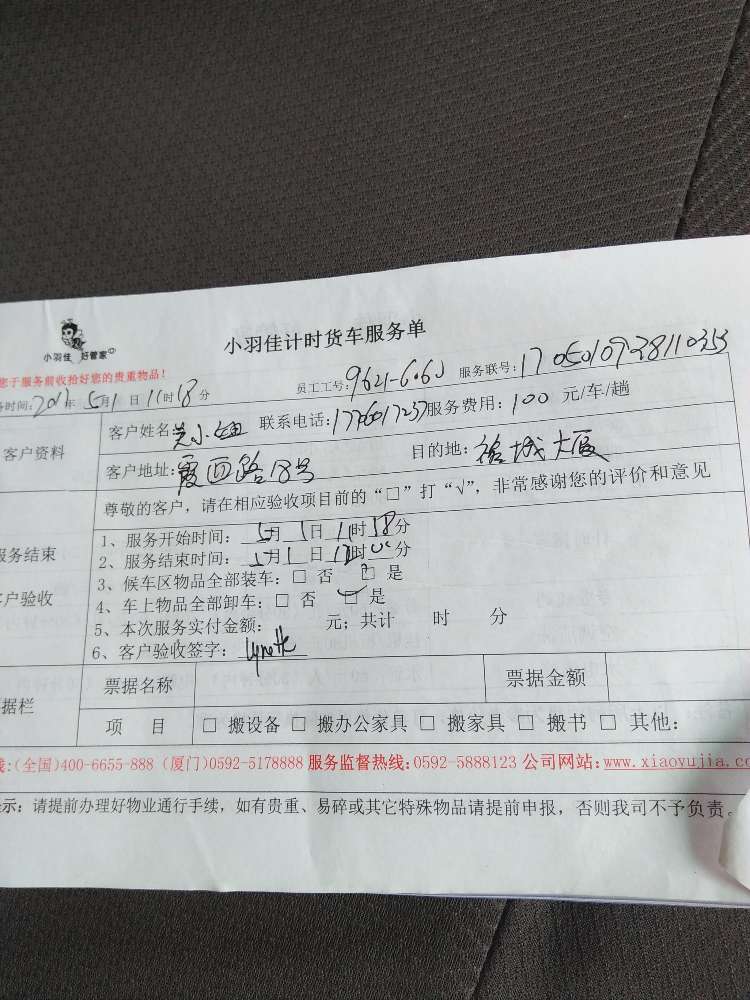 小羽佳计时货车服务单
小羽佳 好管家
您于服务前收拾好您的贵重物品!
务时间:2017年 5月1日 11时18分 员工工号:9621-6060 服务联号:17050109281103
客户资料
客户姓名: 联系电话:17 服务费用:100 元/车/趟
客户地址:霞 路18号 目的地: 城大厦
尊敬的客户,请在相应验收项目前的“□”打“√”,非常感谢您的评价和意见
服务结束
客户验收
1、服务开始时间: 5月 1日 11时18分
2、服务结束时间: 5月1日 时 分
3、候车区物品全部装车:□ 否 □ 是
4、车上物品全部卸车:□ 否 □ 是
5、本次服务实付金额: 元;共计 时 分
6、客户验收签字: Lynette
据栏
票据名称 票据金额
项 目 □ 搬设备 □ 搬办公家具 □ 搬家具 □ 搬书 □ 其他:
线:(全国)400-6655-888 (厦门)0592-5178888 服务监督热线:0592-5888123 公司网站:www.xiaoyujia.co
示:请提前办理好物业通行手续,如有贵重、易碎或其它特殊物品请提前申报,否则我司不予负责。